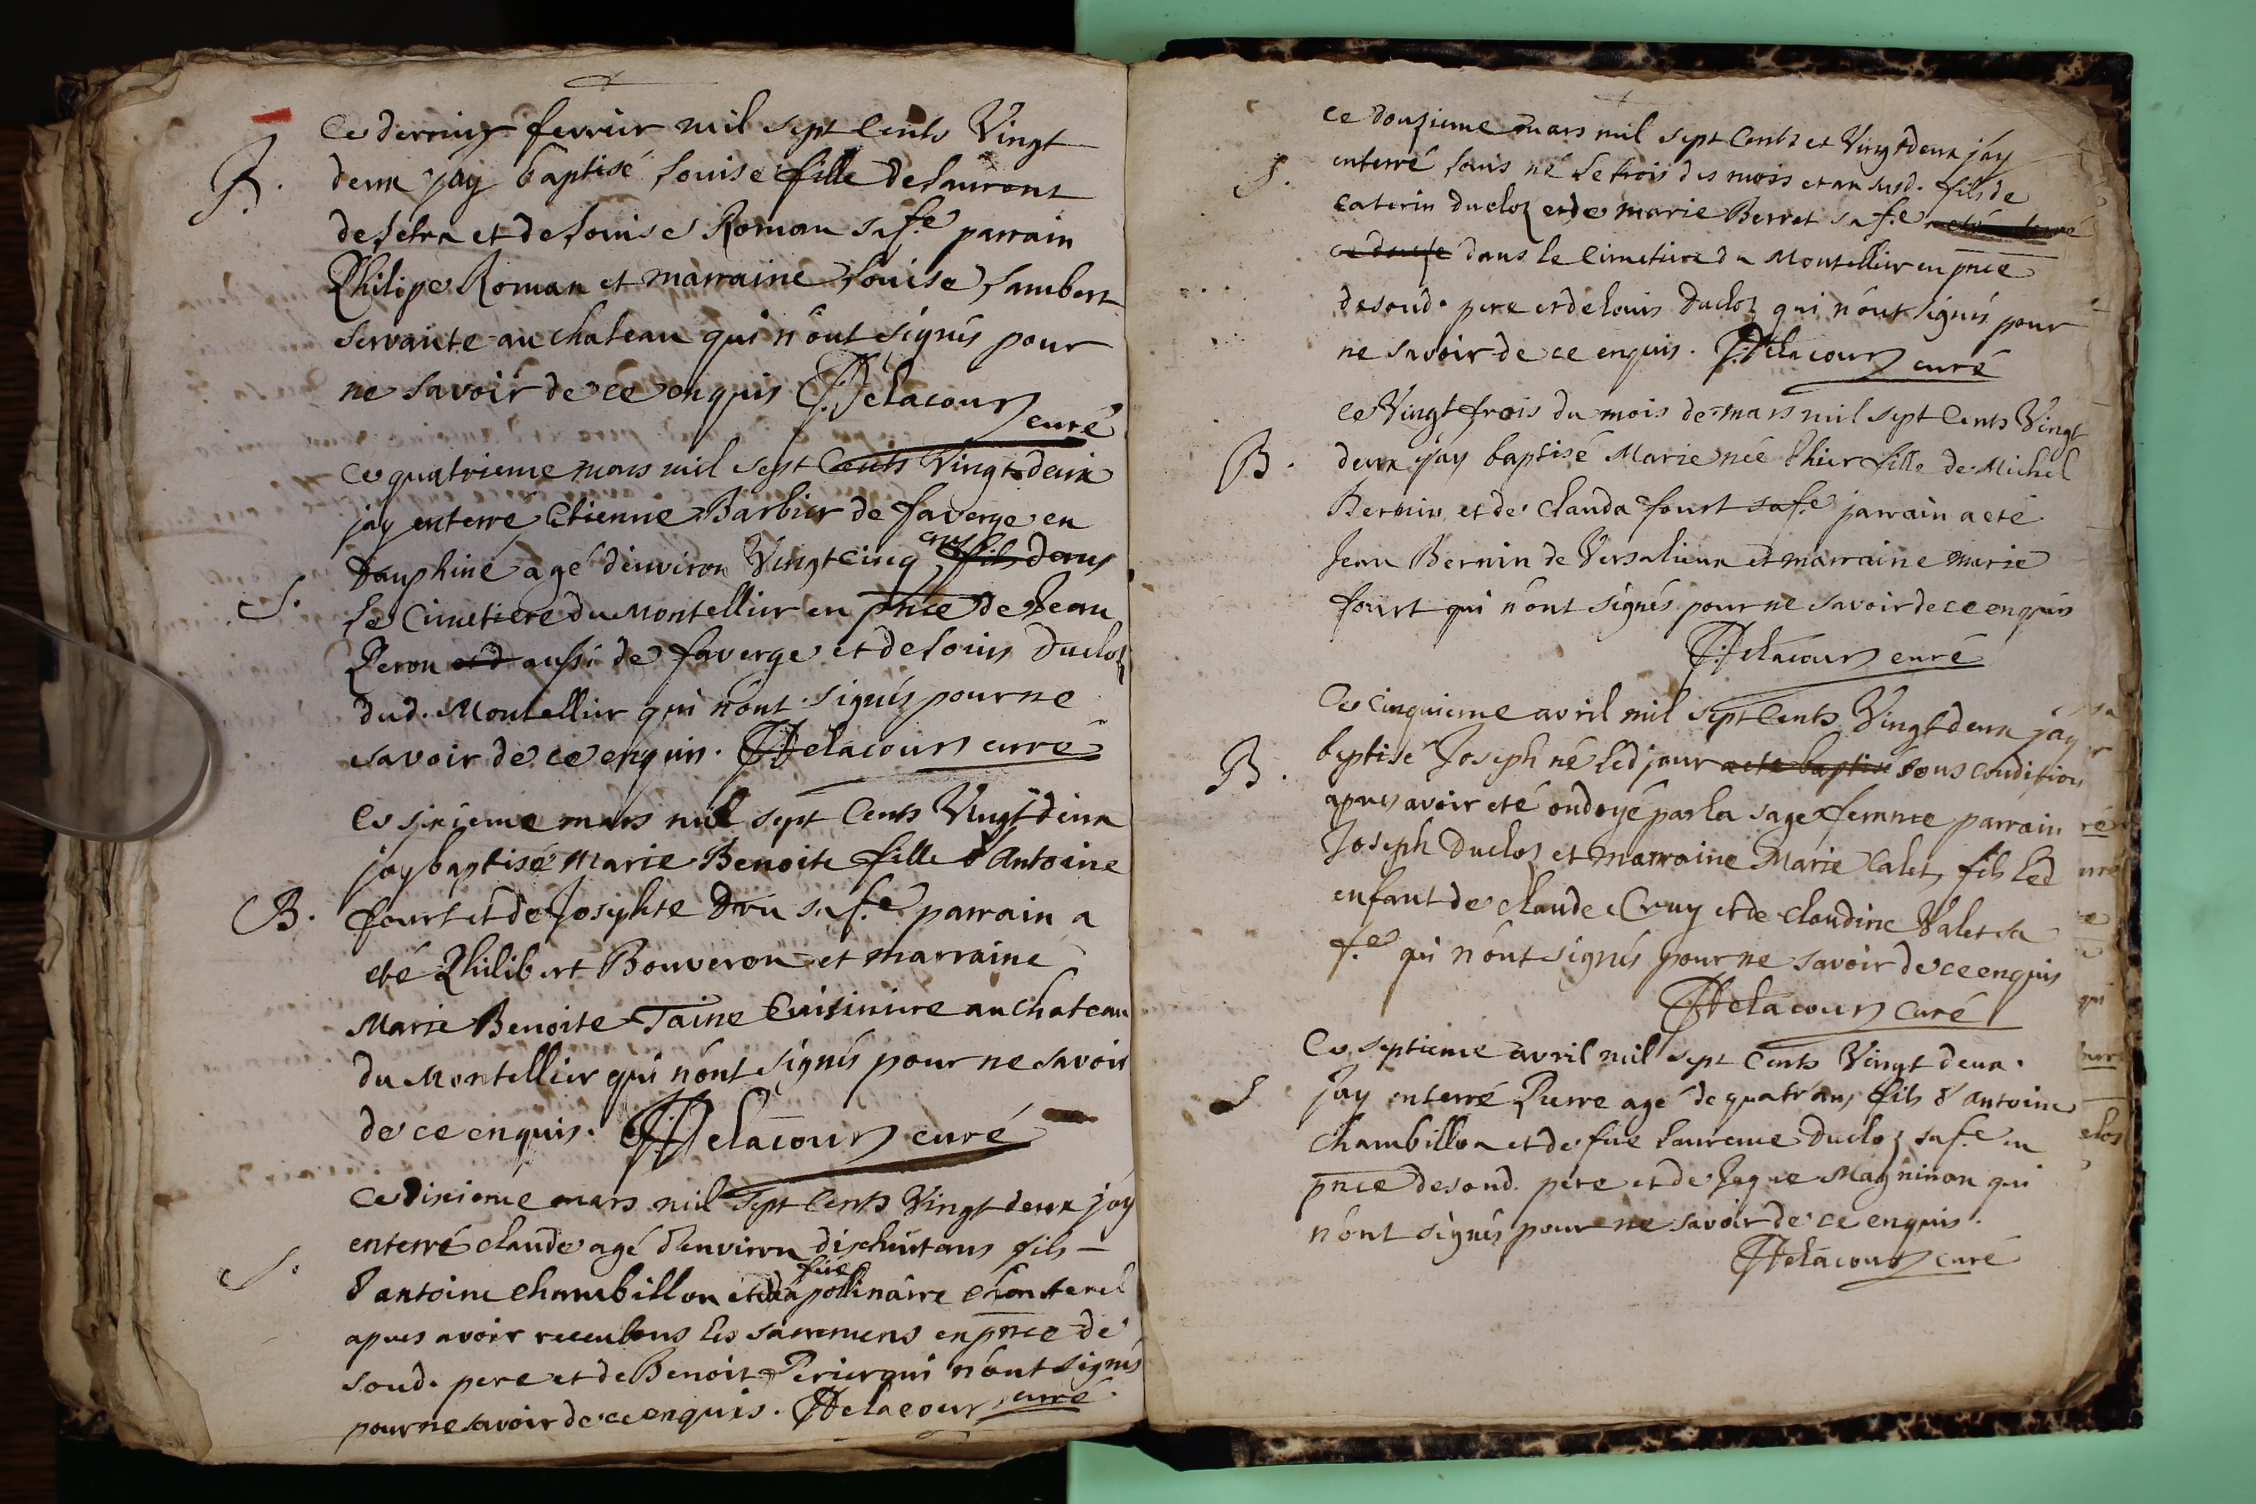 Ce dernier fevrier mil sept Cents Vingt
B. deux jay baptisé Louise fille de Laurent
de et de Louise Roman sa f.e parrain
Philipe Roman et marraine Louise Lambert
servante au chateau qui n'ont signés pour
ne savoir de ce enquis Delacour
curé
Ce quatrieme mars mil sept Cents Vingt deux
jay enterré Etienne Barbier de faverge en
Dauphiné agé d'environ Vingt cinq ans fils dans
S. le Cimetiere du Montellier en pnce de Jean
Peron et d aussi de faverge et de Louis Ducloz
dud. Montellier qui n'ont signés pour ne
savoir de ce enquis. Delacour curé
Ce sixieme mars mil sept Cents Vingt deux
jay baptisé Marie Benoite fille d'Antoine
B. fourt et de Josephte Dru sa f.e parrain a
eté Philibert Bouveron et marraine
Marie Benoite Taine Cuisiniere au chateau
du Montellier qui n'ont signés pour ne savoir
de ce enquis. Delacour curé
Ce dixieme mars mil sept Cents Vingt deux jay
enterré claude agé d'environ dixhuit ans fils
S. d'antoine Chambillon et d'apollinaire
fue
apres avoir receu tous les sacremens en pnce de
soud. pere et de Benoit Perier qui n'ont signés
pour ne savoir de ce enquis. Delacour curé.
ce douzieme mars mil sept Cents et Vingt deux jay
S. enterré Louis né le trois des mois et an susd. fils de
Caterin Ducloz et de marie Berret sa f.e a eté enterré
ce douze dans le Cimetiere du Montellier en pnce
de soud. pere et de Louis Ducloz qui n'ont signés pour
ne savoir de ce enquis. Delacour curé
Ce Vingt trois du mois de mars mil sept Cents Vingt
B. deux jay baptisé Marie née d'hier fille de Michel
Bernin et de Clauda fourt sa f.e parrain a eté
Jean Bernin de Versalieux et marraine marie
fourt qui n'ont signés pour ne savoir de ce enquis
Delacour curé
Ce Cinquieme avril mil sept Cents Vingt deux jay
B. baptisé Joseph né led jour a eté baptisé sous condition
apres avoir eté ondoyé par la sage femme parrain
Joseph Ducloz et marraine Marie Calet, fils led
enfant de Claude Cruy et de Claudine Valet sa
f.e qui n'ont signés pour ne savoir de ce enquis
Delacour Curé
Ce septieme avril mil sept Cents Vingt deux.
S jay enterré Pierre agé de quatr'ans fils d'antoine
Chambillon et de fue Laurence Ducloz sa f.e en
pnce de soud. pere et de Jaque Magninon qui
n'ont signés pour ne savoir de ce enquis.
Delacour curé